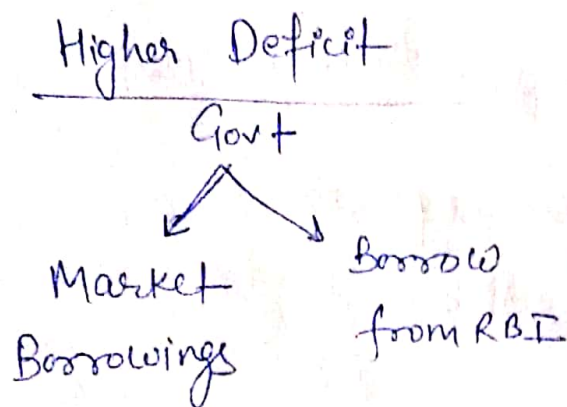 Higher Deficit
Govt
Market
Borrowings
Borrow
from RBI